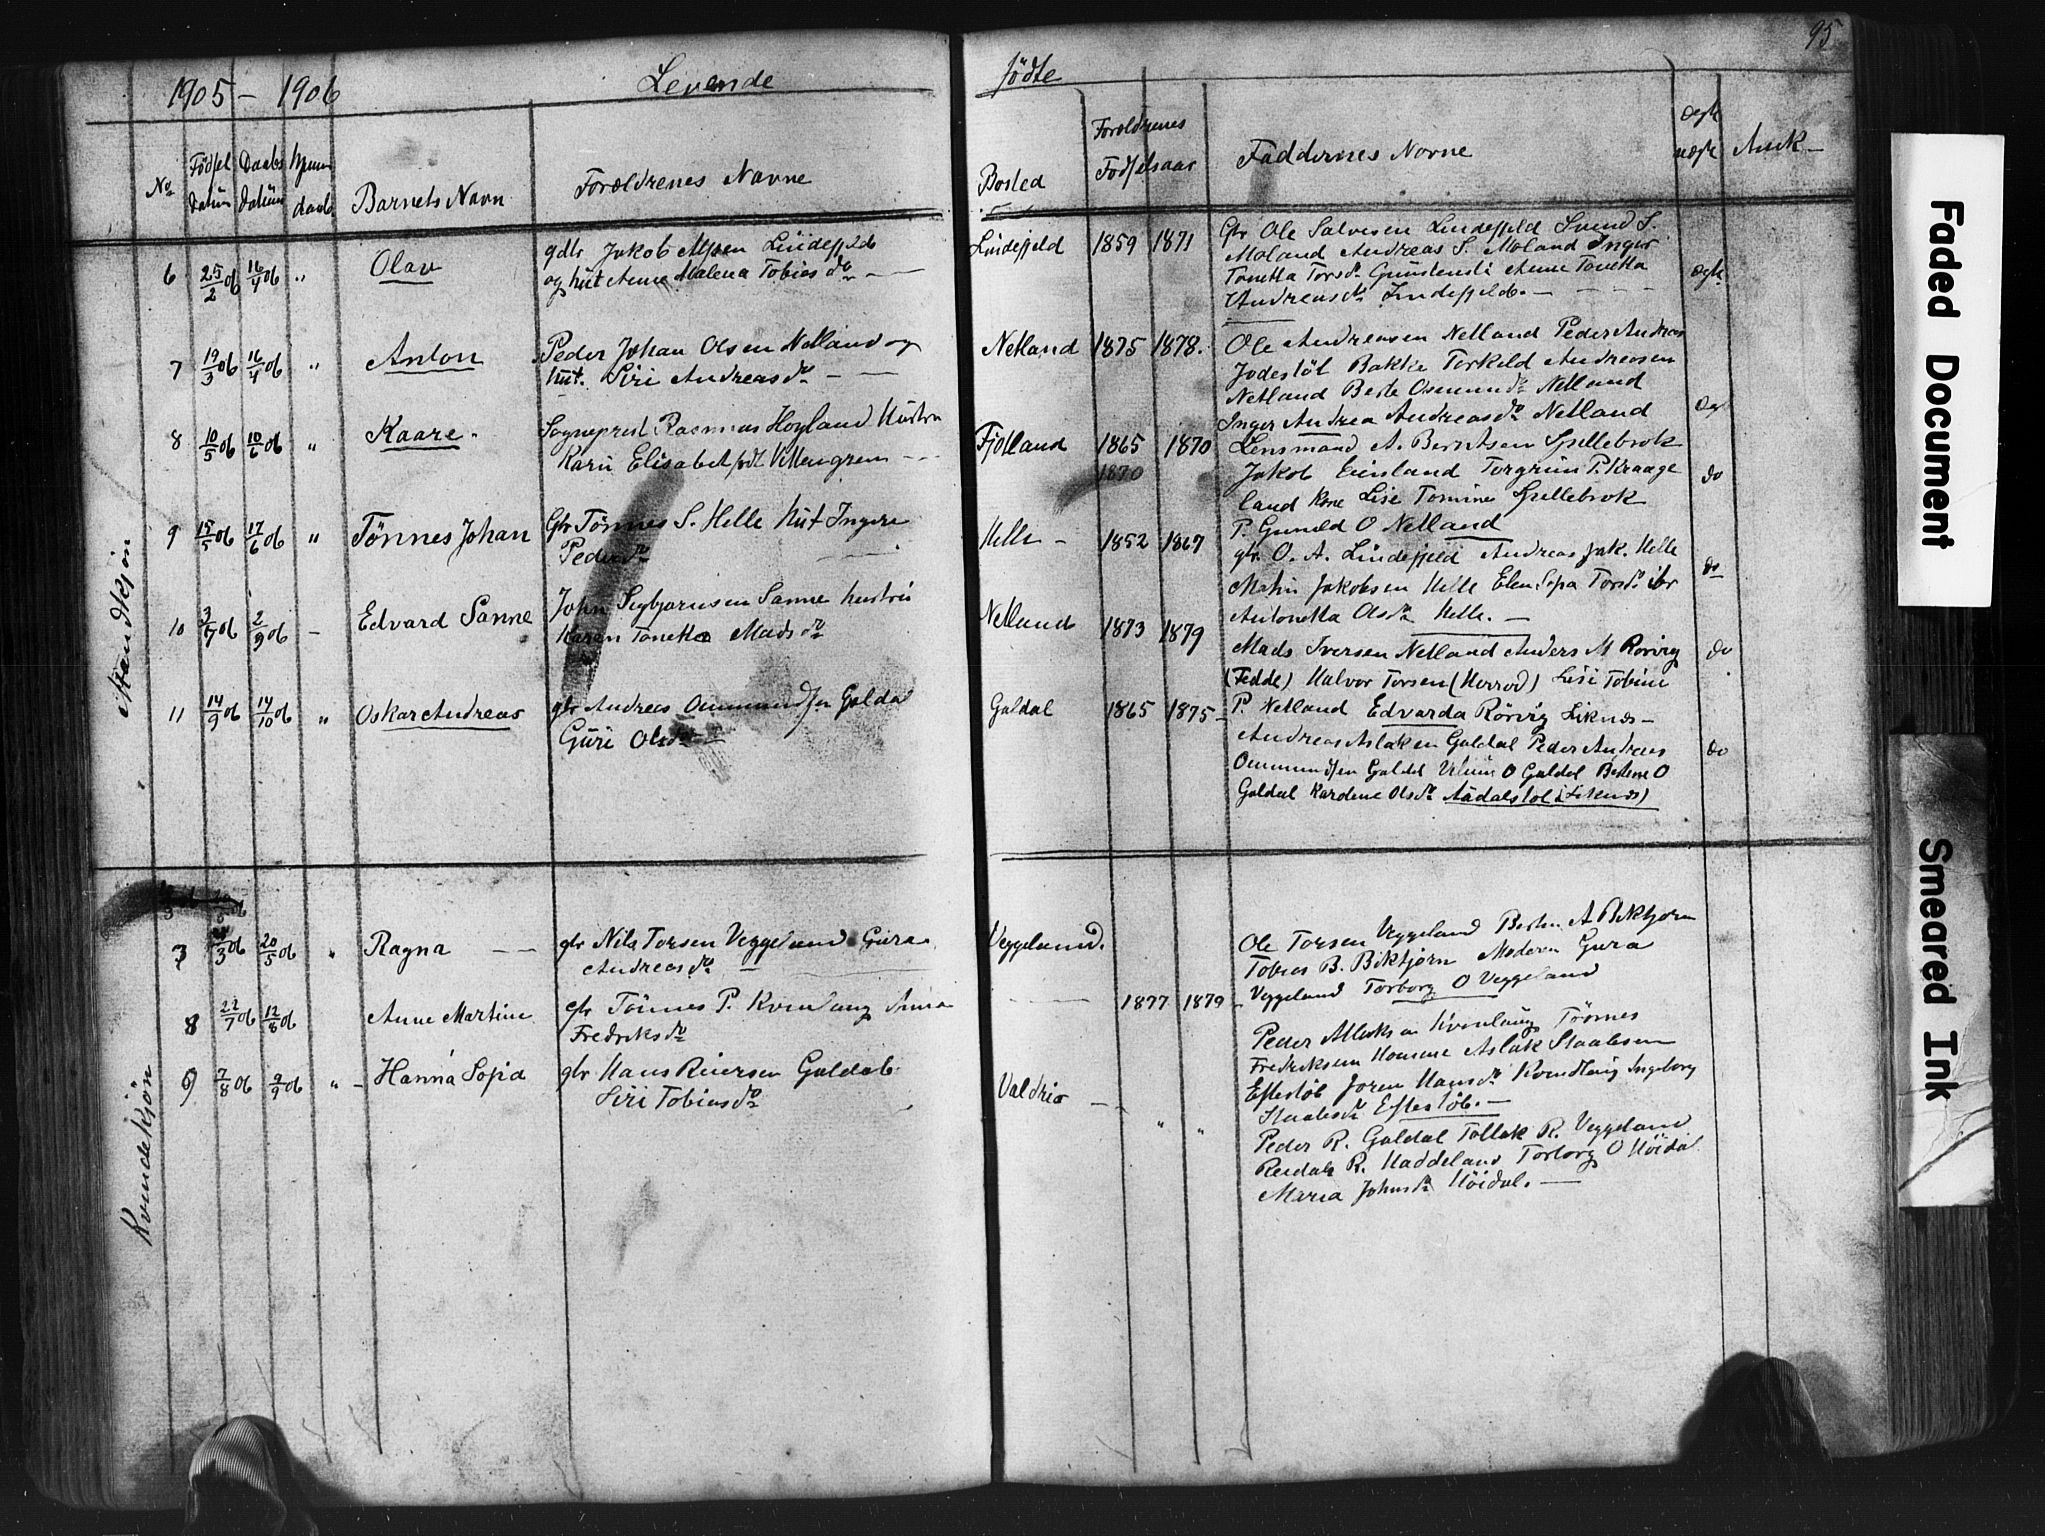 95
1905 – 1906 Levende fødte
No Fødsel datum Daabs datum Hjemme daab Barnets Navn Forældrenes Navne Bosted Forældrenes Fødselsaar Faddernes Navne Ægte uægte Anm
Mandkjøn
6 25/2 06 16/4 06 " Olav
gdbr Jakob Lindefjeld
og hut Anne Malena Tobiasdr
Lindefjeld 1859 1871
Gbr Ole Salvesen Lindefjeld Svend S.
Moland Andreas S. Moland Inger
Tonetta Torsdr Anne Tonetta
Andreasdr Lindefjeld. –
Ægte
7 19/3 06 16/4 06 " Anton
Peder Johan Olsen Netland og
hut. Siri Andreasdr –
Netland 1875 1878.
Ole Andreasen Netland Peder Andreas
Jodestöl Bakke Torkeld Andreasen
Netland Berte Osmundsdr Netland
Inger Andrea Andreasdr Netland
Æg
8 10/5 06 10/6 06 " Kaare.
Sogneprest Rasmus Høyland Hustru
Karii Elisabet født Vettengren
Fjotland 1865 1870
1870
Lensmand A. Berntsen Spellebrok
Jakob Eiesland Torgrim P. Kraage
land Kone Lise Tomine Spellebrok
P. Gunvld O Netland
do
9 15/5 06 17/6 06 " Tönnes Johan
Gbr Tönnes S. Helle hut Ingere
Pedersdr
Helle – 1852 1867
gbr. O. A. Lindefjeld Andreas Jak. Helle
Jakobsen Helle Elen Sofia Torsdr
Antonetta Olsdr Helle. –
do
10 3/7 06 2/9 06 – Edvard Sanne
John Sigbjørnsen Sanne hustru
Karen Tonetta Madsdr
Netland 1873 1879
Mads Iversen Netland Anders M Rørvig
(Fedde) Halvor Torsen (Herrod) Lise Tobine
P. Netland Edvarda Rörvig Liknes –
do
11 14/9 06 14/10 06 " Oskar Andreas
gbr Andreas Ommundsen Galdal
Guri Olsdr
Galdal 1865 1875 –
Andreas Aslaksen Galdal Peder Andreas
Ommundsen Galdal O Galdal Bertine O
Galdal Kardene Olsdr Aadalstöl (Liknes)
do
Kvindekjøn
7 /3 06 20/5 06 " Ragna – –
gbr Nils Torsen Veggeland Gura
Andreasdr –
Veggeland.
Ole Torsen Veggeland A Birktjørn
Tobias B. Birktjørn Moderen Gura
Veggeland Torborg O Veggeland
8 22/7 06 12/8 06 Anne Martine
gbr Tönnes P. Kvinlaug Anna
Fredriksdr
1877 1879 –
Peder Kvinlaug Tönnes
Fredriksen Homme Aslak Staalesen
Eftestöl Joren Hansdr Kvinlaug Ingeborg
Staalesdr Eftestöl. –
9 7/8 06 9/9 06 " – Hanna Sofia
gbr Hans Reiersen Galdal
Siri Tobiasdr
Valdrio – " "
Peder R. Galdal Tollak R. Veggeland
Reidar R. Haddeland Torborg O Höidal
Maria Johnsdr Höidal. –
Faded Document
Smeared Ink